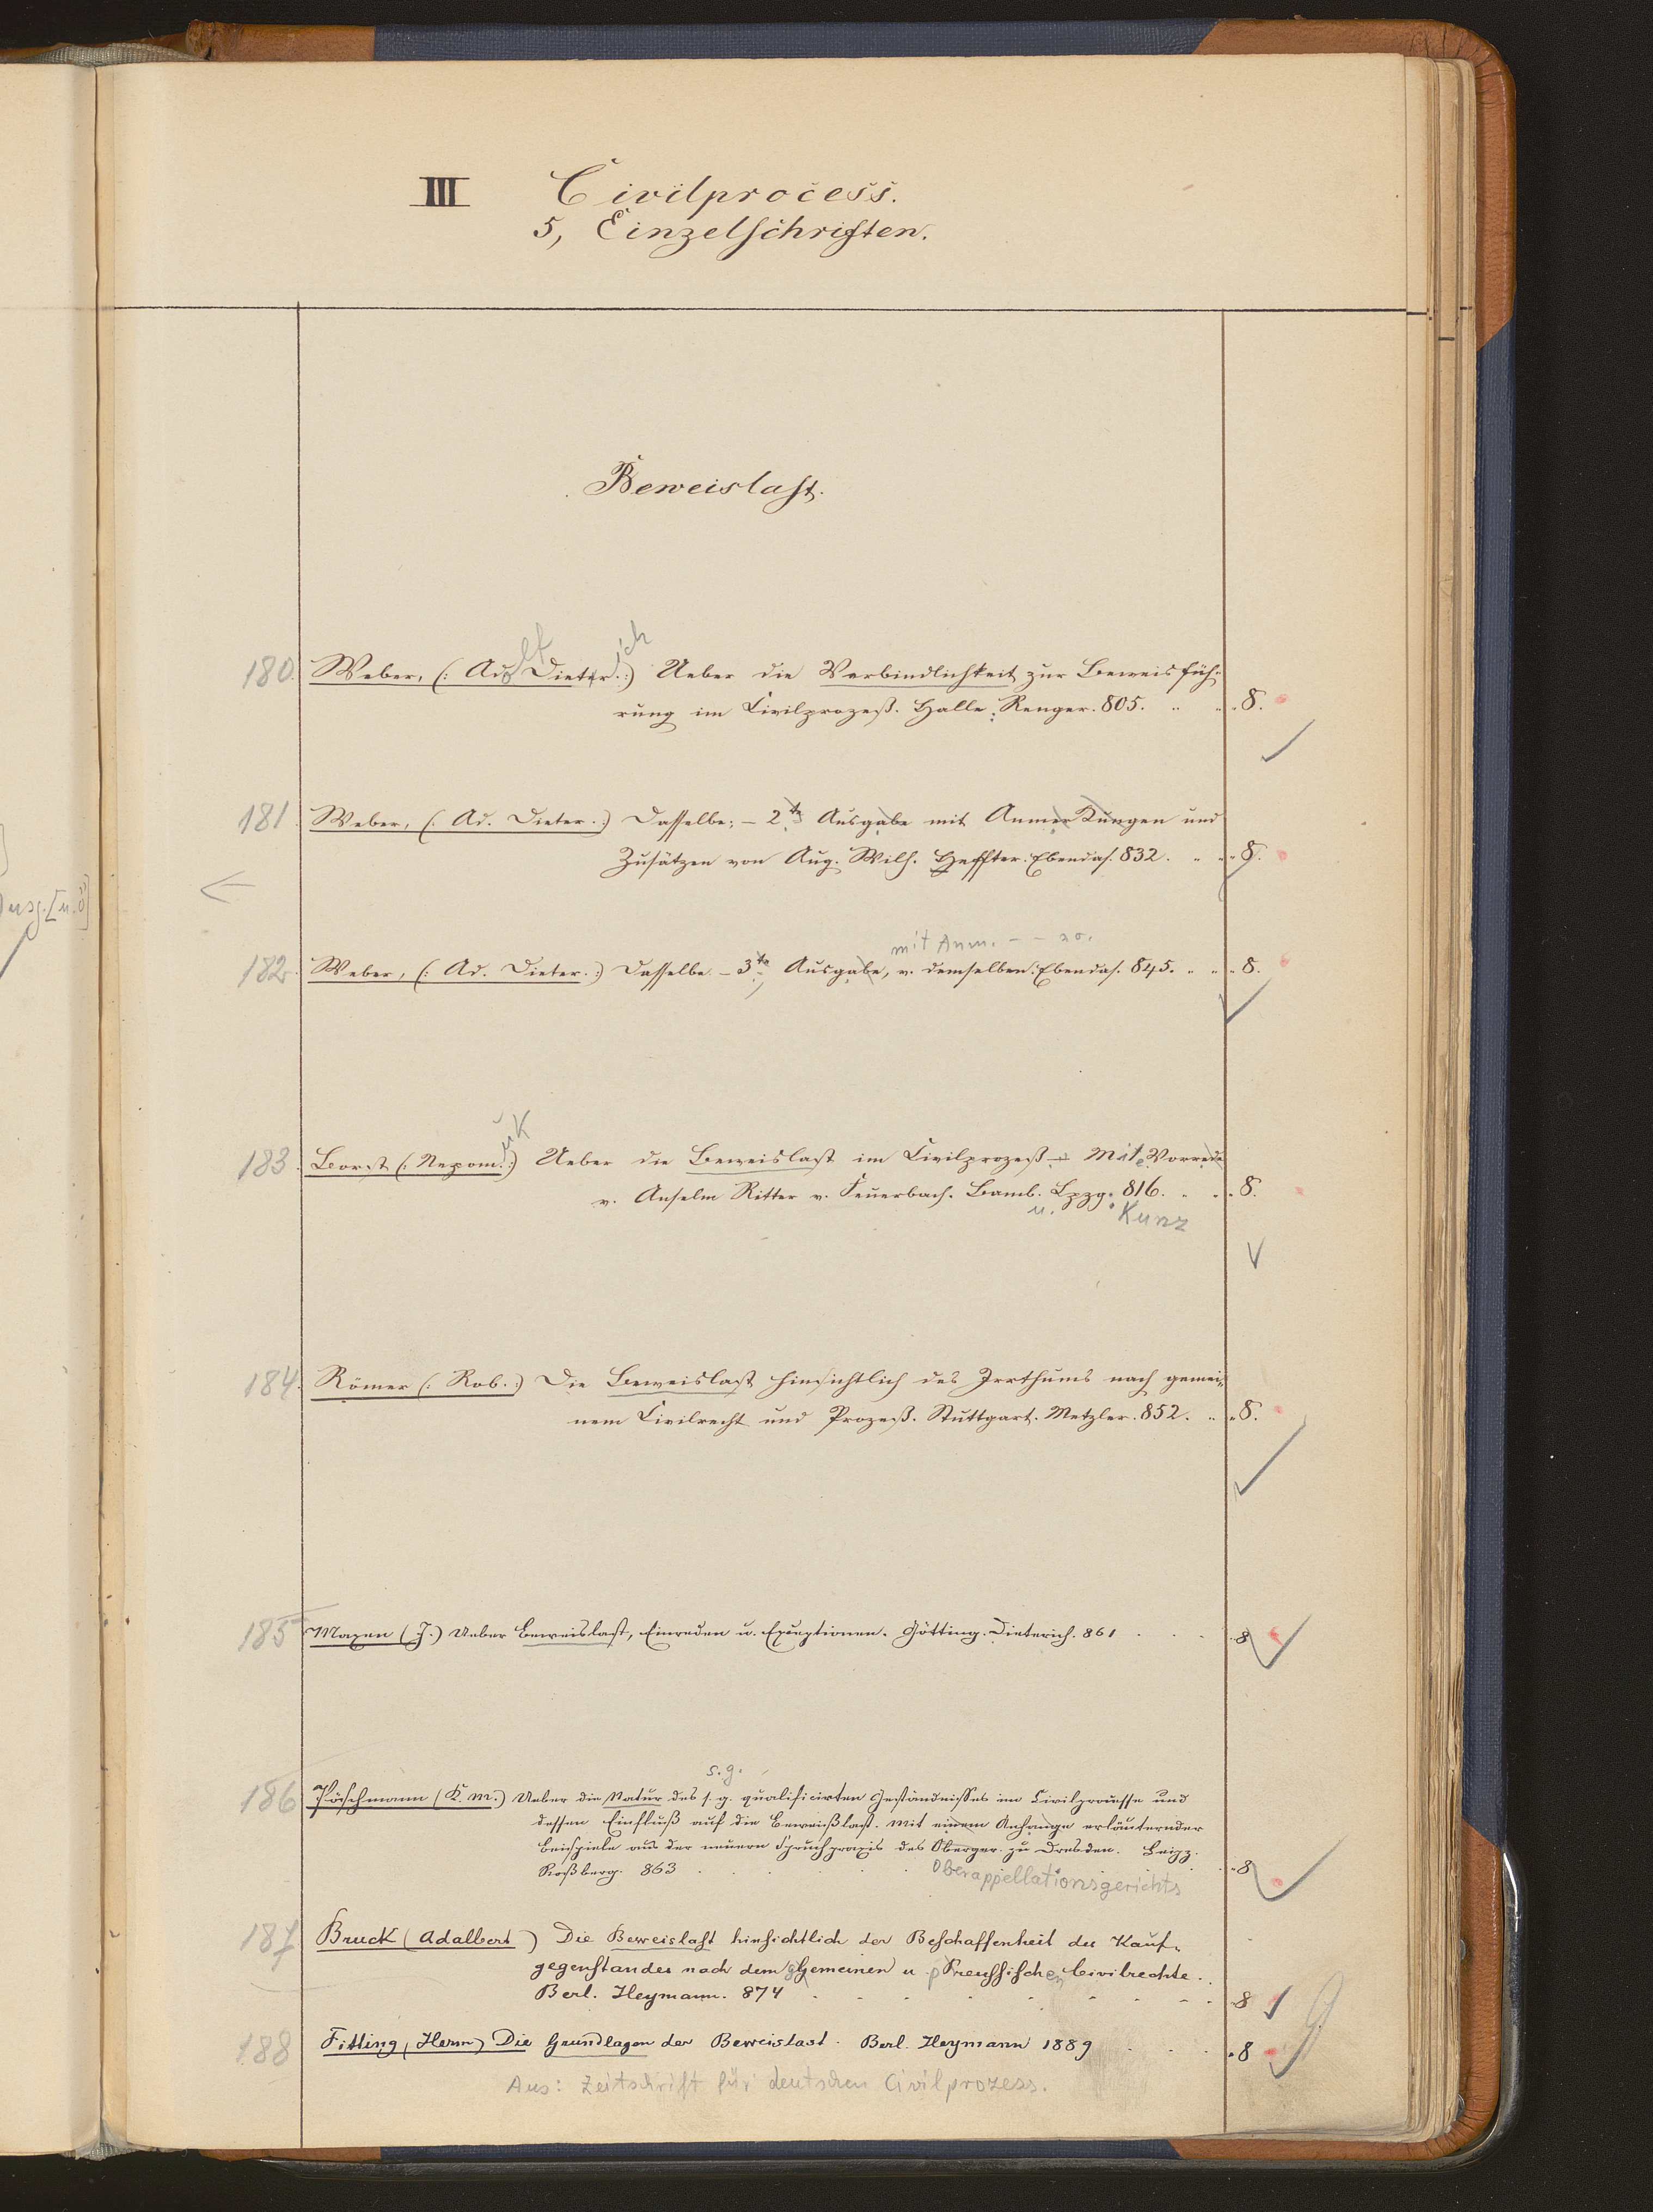 III Civilprocess.
5, Einzelschriften.
Beweislast.
180. Weber, (: Adolf Dietrich :) Ueber die Verbindlichkeit zur Beweisfüh-
rung im Civilprozeß. Halle, Renger. 805. 8.
181. Weber, (: Ad. Dieter. :) Dasselbe; – 2te Ausgabe mit Anmerkungen und
Zusätzen von Aug. Wilh. Heffter. Ebendas. 832. 8.
mit Anm. – –
182. Weber, (: Ad. Dieter. :) Dasselbe – 3te Ausgabe, v. demselben. Ebendas. 845. 8.
183. Borst (: Nepomuk :) Ueber die Beweislast im Civilprozeß – Mit Vorrede
v. Anselm Ritter v. Feuerbach. Bamb. u. Lpzg. 816. 8.
Kunz
184. Römer (: Rob. :) Die Beweislast hinsichtlich des Irrthums nach gemei-
nem Civilrecht und Prozeß. Stuttgart. Metzler. 852. 8.
185 Maxen (J.) Ueber Beweislast, Einreden u. Exceptionen. Götting. Dieterich. 861 8
s. g.
186 Pöschmann (K. M.) Ueber die Natur des s. g. qualificirten Geständnisses im Civilprocesse und
dessen Einfluß auf die Beweißlast. Mit einem Anhange erläuternder
Beispiele aus der neuern Spruchpraxis des Oberger. zu Dresden. Leipz.
Roßberg. 863 8
Oberappellationsgerichts
187 Bruck (Adalbert) Die Beweislast hinsichtlich der Beschaffenheit des Kauf-
gegenstandes nach dem gemeinen u. preussischen Civilrechte.
Berl. Heymann. 874 8
188 Fitting, Herm) Die Grundlagen der Beweislast. Berl. Heymann 1889 8
Aus: Zeitschrift für deutschen Civilprozess.